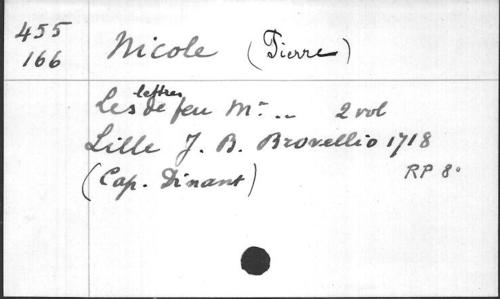 455
166
Nicole (Pierre)
Les lettres de feu Mr .. 2 vol
Lille J. B. Brovellio 1718
(Cap. Dinant) RP 8°